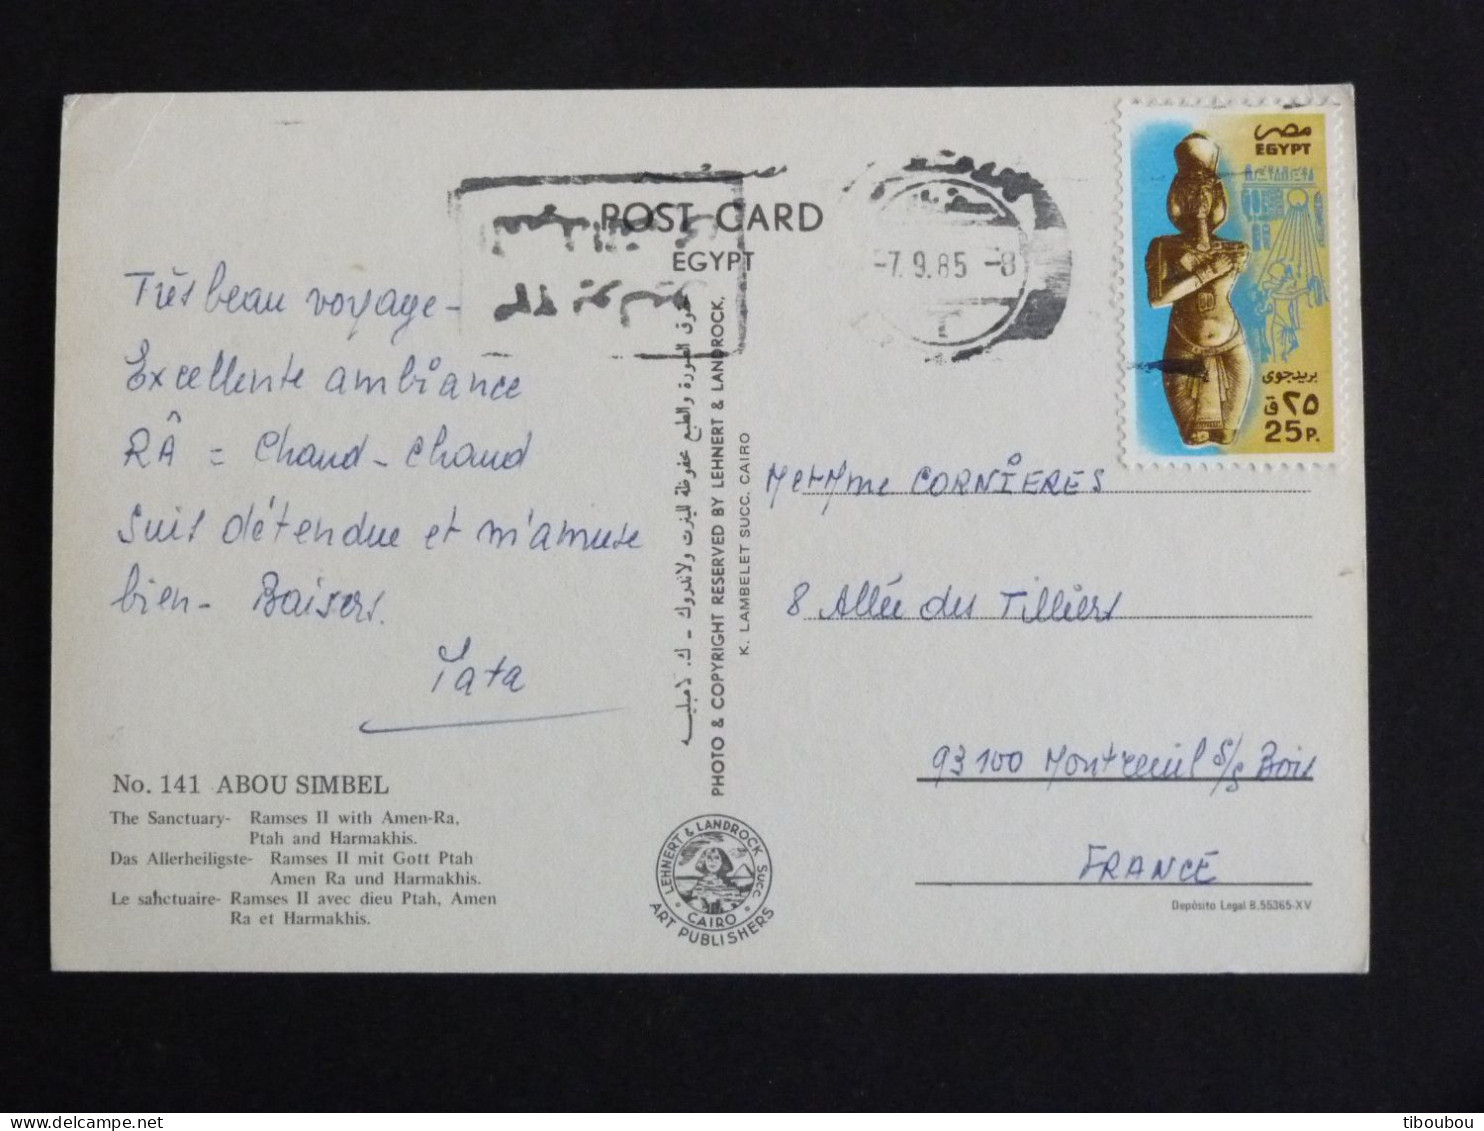 POST CARD
EGYPT
-7.9.85-8
T
مصر
EGYPT
بريد جوى
٢٥ ق
25 P.
Très beau voyage -
Excellente ambiance
RÂ = Chaud - chaud
Suis détendue et m'amuse
bien - Baisers.
Tata
No. 141 ABOU SIMBEL
The Sanctuary- Ramses II with Amen-Ra,
Ptah and Harmakhis.
Das Allerheiligste- Ramses II mit Gott Ptah
Amen Ra und Harmakhis.
Le sanctuaire- Ramses II avec dieu Ptah, Amen
Ra et Harmakhis.
حقوق الصورة والطبع محفوظة للينرت ولاندروك - ك. لامبليه
PHOTO & COPYRIGHT RESERVED BY LEHNERT & LANDROCK,
K. LAMBELET SUCC. CAIRO
LEHNERT & LANDROCK SUCC.
CAIRO
ART PUBLISHERS
M et Mme CORNIERES
8 Allée des Tilliers
93100 Montreuil s/s Bois
FRANCE
Depósito Legal B.55365-XV
tiboubou